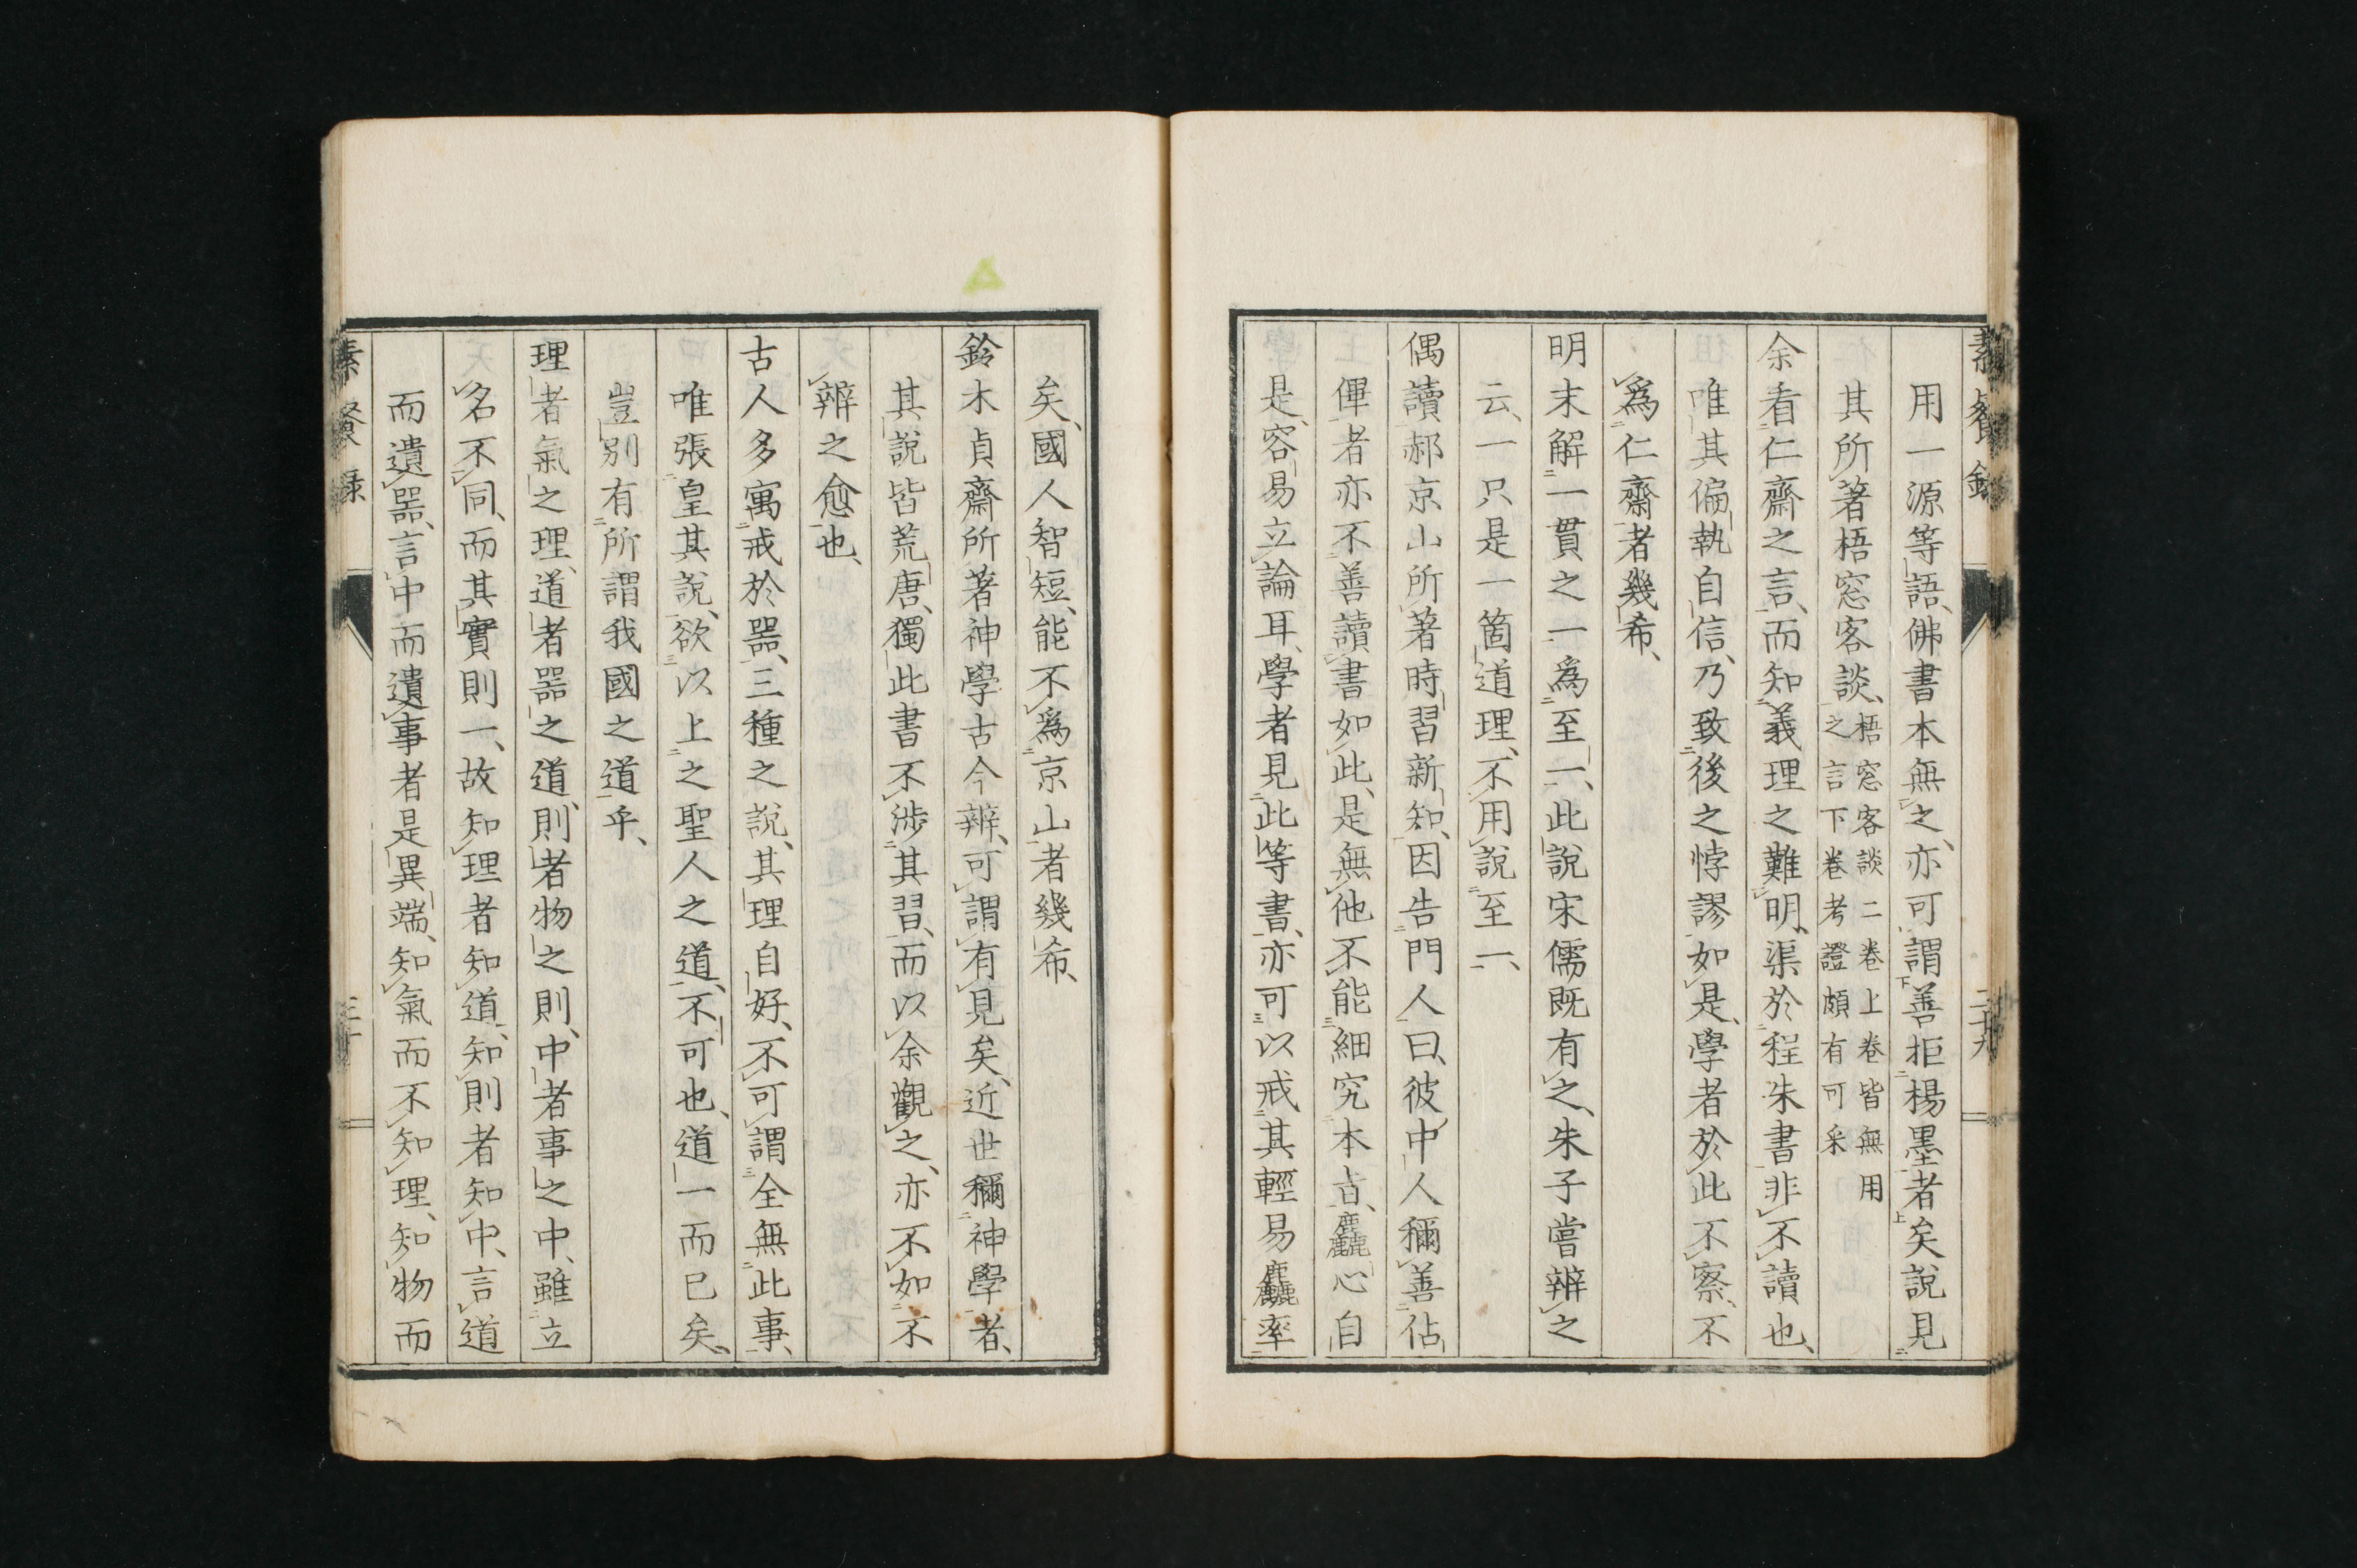 素餐錄
二十九
用一源等語、佛書本無之、亦可謂善拒楊墨者矣說見
其所著梧窓客談、梧窓客談二卷上卷皆無用
之言下卷考證頗有可采
余看仁齋之言、而知義理之難明、渠於程朱書非不讀也、
唯其偏執自信、乃致後之悖謬如是、學者於此不察、不
爲仁齋者幾希、
明末解一貫之一爲至一、此說宋儒既有之、朱子嘗辨之
云、一只是一箇道理、不用說至一、
偶讀郝京山所著時習新知、因告門人曰、彼中人稱善佔
𠌯者亦不善讀書如此、是無他不能細究本旨、麤心自
是、容易立論耳、學者見此等書、亦可以戒其輕易麤率
矣、國人智短、能不爲京山者幾希、
鈴木貞齋所著神學古今辨、可謂有見矣、近世稱神學者、
其說皆荒唐、獨此書不涉其習、而以余觀之、亦不如不
辨之愈也、
古人多寓戒於器、三種之說、其理自好、不可謂全無此事、
唯張皇其說、欲以上之聖人之道、不可也、道一而已矣、
豈別有所謂我國之道乎、
理者氣之理、道者器之道、則者物之則、中者事之中、雖立
名不同、而其實則一、故知理者知道、知則者知中、言道
而遺器、言中而遺事者是異端、知氣而不知理、知物而
素餐錄
三十